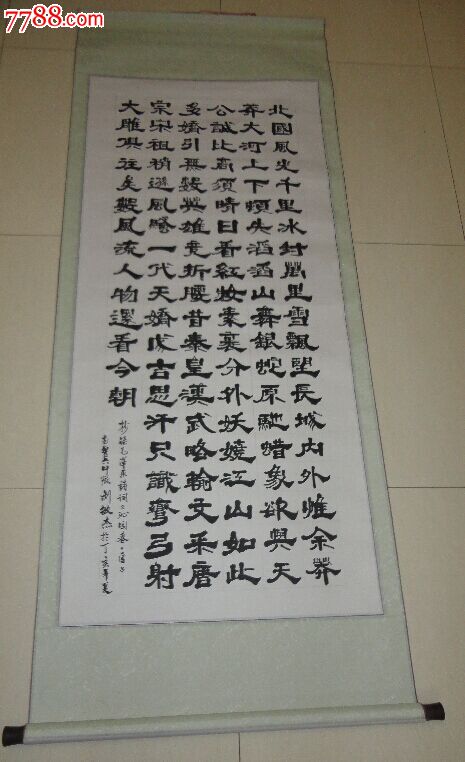 7788.com
北國風光千里冰封萬里雪飄望長城内外惟余莽
莽大河上下頓失滔滔山舞銀蛇原馳蜡象欲與天
公試比高須晴日看紅妝素裹分外妖嬈江山如此
多嬌引無數英雄竞折腰昔秦皇漢武略輸文采唐
宗宋祖稍遜風騷一代天嬌成吉思汗只識彎弓射
大雕俱往矣數風流人物還看今朝
抄錄毛澤東詩詞之沁園春
劉敏杰於丁亥年夏